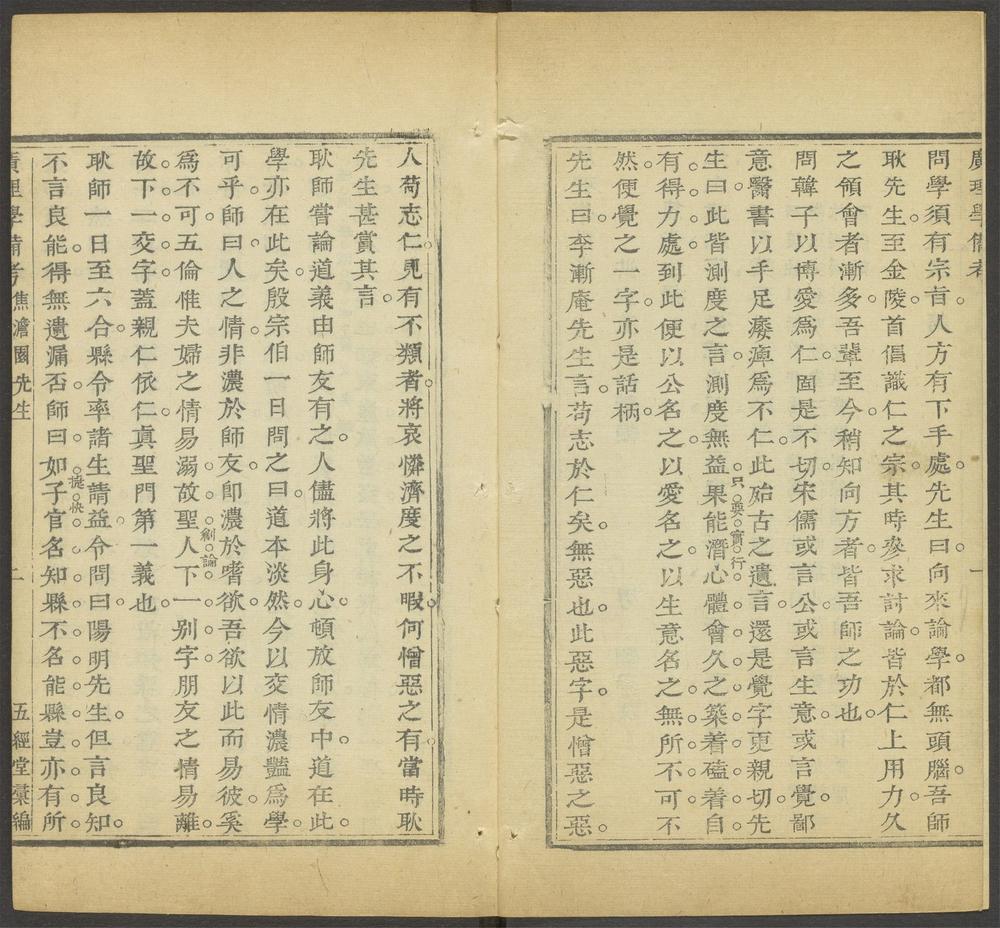 廣理學備考
一
問學須有宗旨人方有下手處先生曰向來論學都無頭腦吾師
耿先生至金陵首倡識仁之宗其時參求討論皆於仁上用力久
之領會者漸多吾輩至今稍知向方者皆吾師之功也
問韓子以博愛為仁固是不切宋儒或言公或言生意或言覺鄙
意醫書以手足痿痺為不仁此殆古之遺言還是覺字更親切先
生曰此皆測度之言測度無益果能潛心體會久之築着磕着自
只要實行
有得力處到此便以公名之以愛名之以生意名之無所不可不
然便覺之一字亦是話柄
先生曰李漸庵先生言苟志於仁矣無惡也此惡字是憎惡之惡
人苟志仁見有不類者將哀憐濟度之不暇何憎惡之有當時耿
先生甚賞其言
耿師嘗論道義由師友有之人儘將此身心頓放師友中道在此
學亦在此矣殷宗伯一日問之曰道本淡然今以交情濃豔為學
可乎師曰人之情非濃於師友卽濃於嗜欲吾欲以此而易彼奚
為不可五倫惟夫婦之情易溺故聖人下一别字朋友之情易離
創論
故下一交字蓋親仁依仁真聖門第一義也
耿師一日至六合縣令率諸生請益令問曰陽明先生但言良知
不言良能得無遺漏否師曰如子官名知縣不名能縣豈亦有所
快
廣理學備考
焦澹園先生
二
五經堂彙編